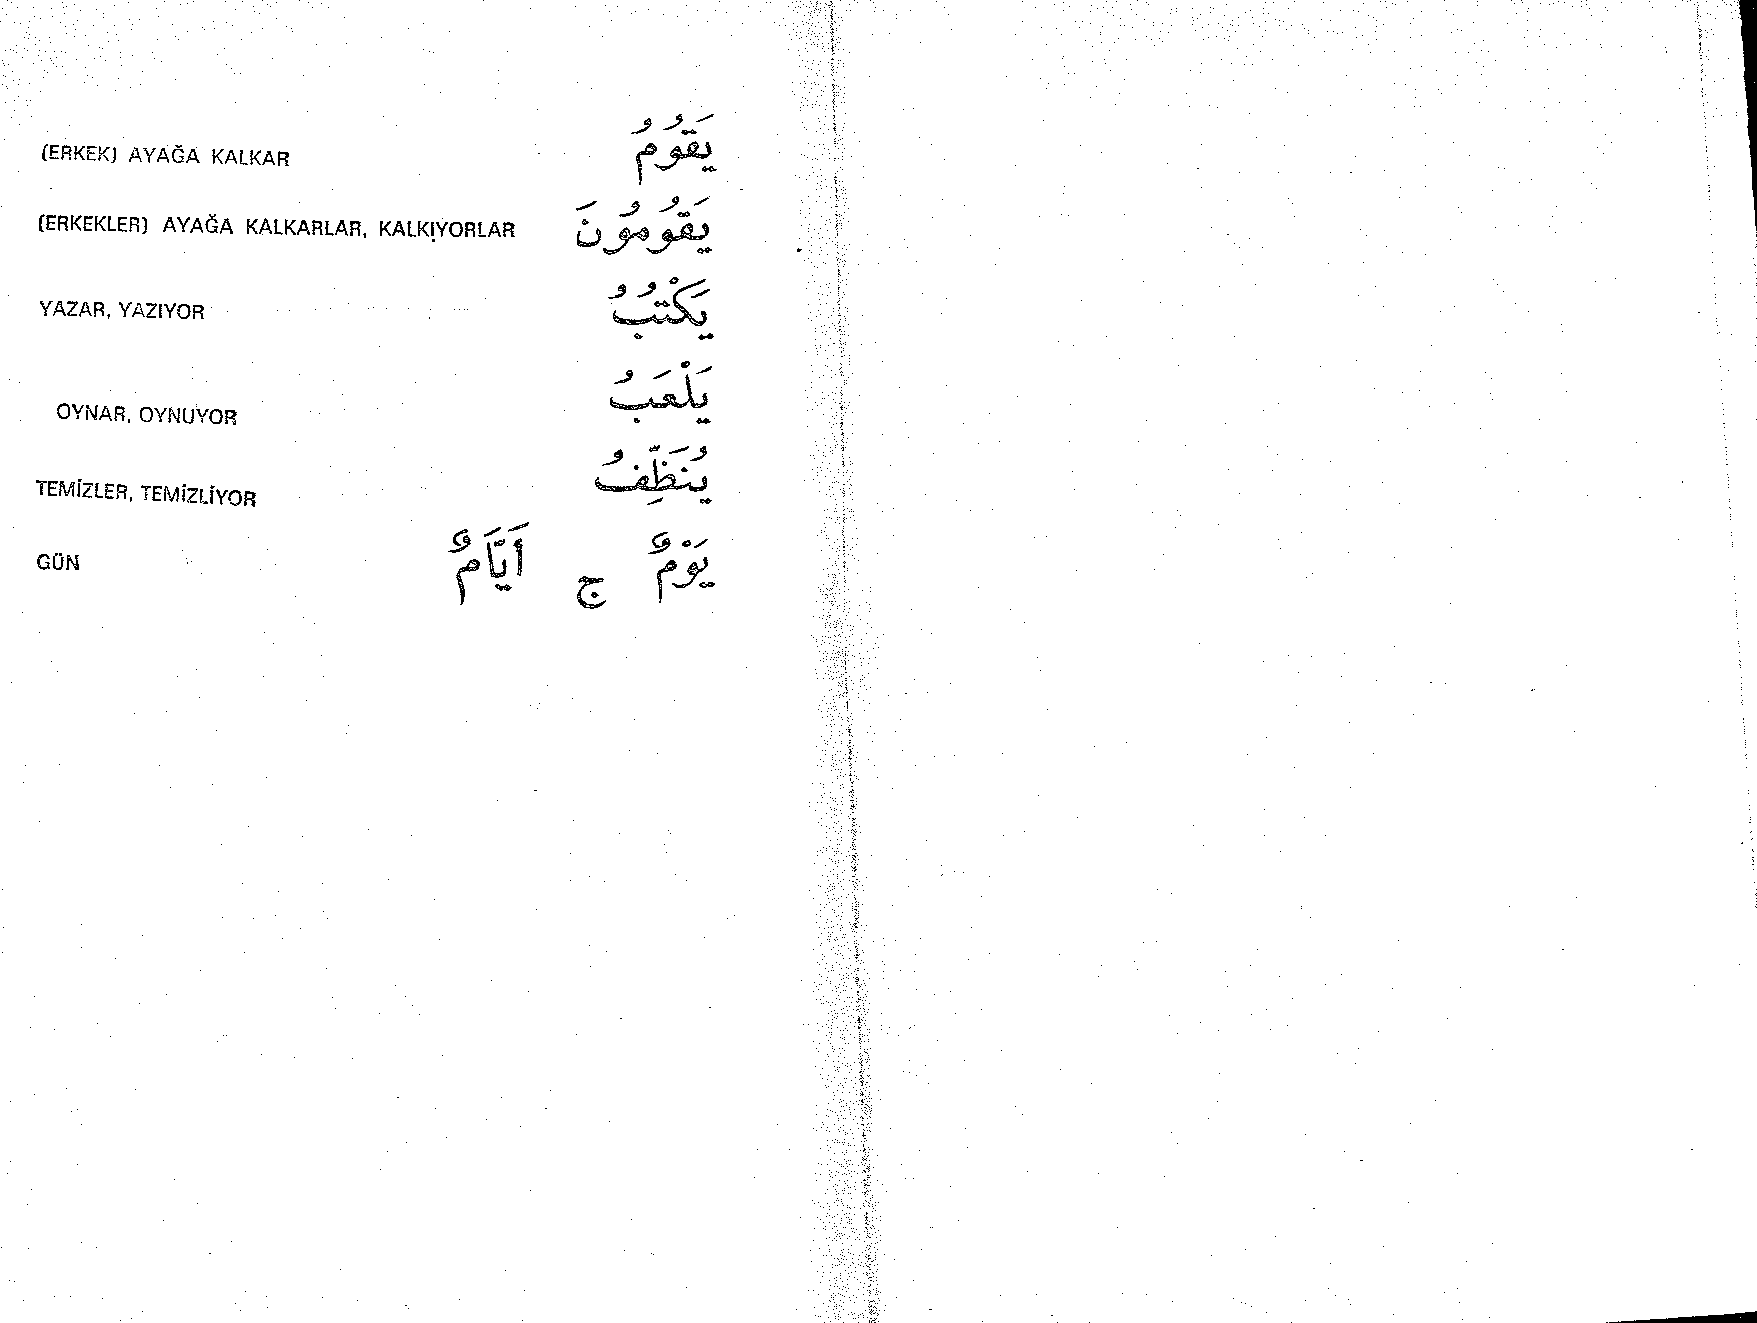 (ERKEK) AYAĞA KALKAR يَقُومُ
(ERKEKLER) AYAĞA KALKARLAR, KALKIYORLAR يَقُومُونَ
YAZAR, YAZIYOR يَكْتُبُ
OYNAR, OYNUYOR يَلْعَبُ
TEMİZLER, TEMİZLİYOR يُنَظِّفُ
GÜN يَوْمٌ ج أَيَّامٌ